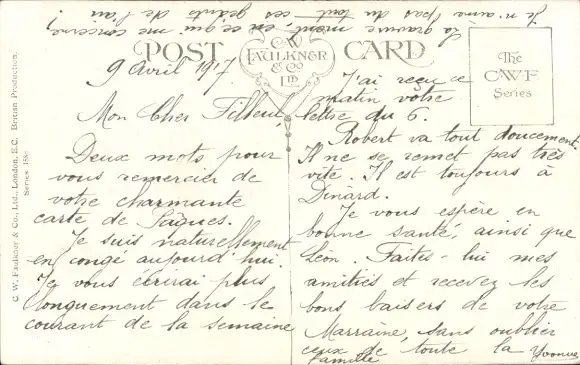 Je n'aime pas du tout ces géants de l'air !
La gravure ment, en ce qui me concerne,
POST CARD
C.W. FAULKNER & Co Ltd
The C.W.F. Series
C. W. Faulkner & Co., Ltd., London, E.C. British Production.
Series 1581
9 Avril 1917
Mon Cher Filleul,
Deux mots pour
vous remercier de
votre charmante
carte de Pâques.
Je suis naturellement
en congé aujourd'hui.
Je vous écrirai plus
longuement dans le
courant de la semaine
J'ai reçu ce
matin votre
lettre du 6.
Robert va tout doucement.
Il ne se remet pas très
vite. Il est toujours à
Dinard.
Je vous espère en
bonne santé, ainsi que
Léon. Faites-lui mes
amitiés et recevez les
bons baisers de votre
Marraine, sans oublier
ceux de toute la
famille
Yvonne